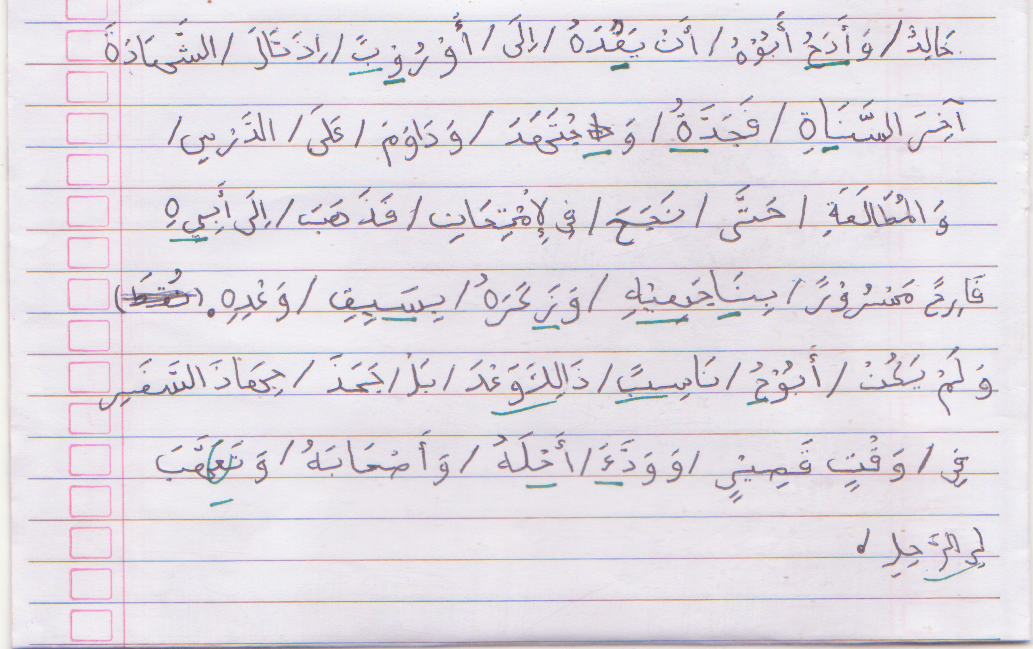 خَالِدْ / وَأَدَحُ أَبُوْهُ / أَنْ يَقُدَهُ / إِلَى / أُوْرُوْبَّ / إِذَ نَالَ / الشَّهَادَةَ
آخِرَ السَّنَاةِ / فَجَدَّةُ / وَ جْتَهَدَ / وَدَاوَمَ / عَلَى / الدَّرْسِ /
وَالمُطَالَعَةِ / حَتَّى / نَجَحَ / فِي لِإمْتِحَانِ / فَذَهَبَ / إِلَى أَبِيهِ
فَارِحً مَسْرُوْرً / بِنَاجَحِيْهِ / وَزَكَرَهُ / بِسَيِفِ / وَعْدِهِ.
وَلَمْ يَكُنْ / أَبُوْحُ / نَاسِبً / ذَالِكَ وَعْدَ / بَلْ / جَحَدَ / جِحَادَ السَّفَرِ
فِي / وَقْتٍ قَصِيْرٍ / وَوَدَّءَ / أَحْلَهُ / وَأَصْحَابَهُ / وَتَعَهَّبَ
لِرالرَّحِلِ.